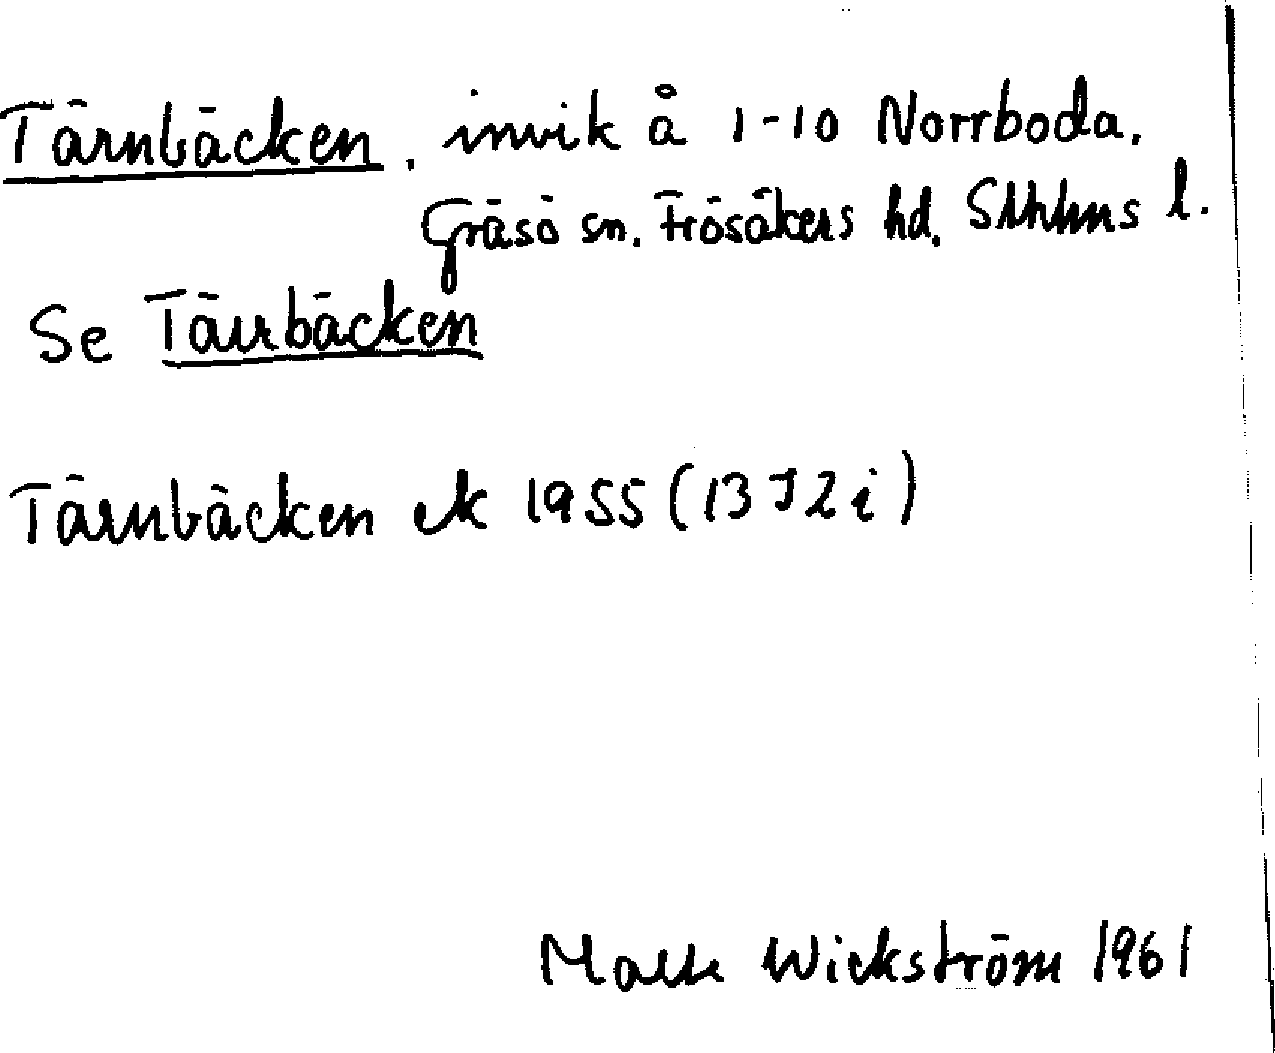 Tärnbäcken, invik å 1-10 Norrboda.
Gräsö sn. Frösåkers hd. Sthlms l.
Se Tärrbäcken
Tärnbäcken ek 1955 (13 I 2 i)
Malte Wickström 1961